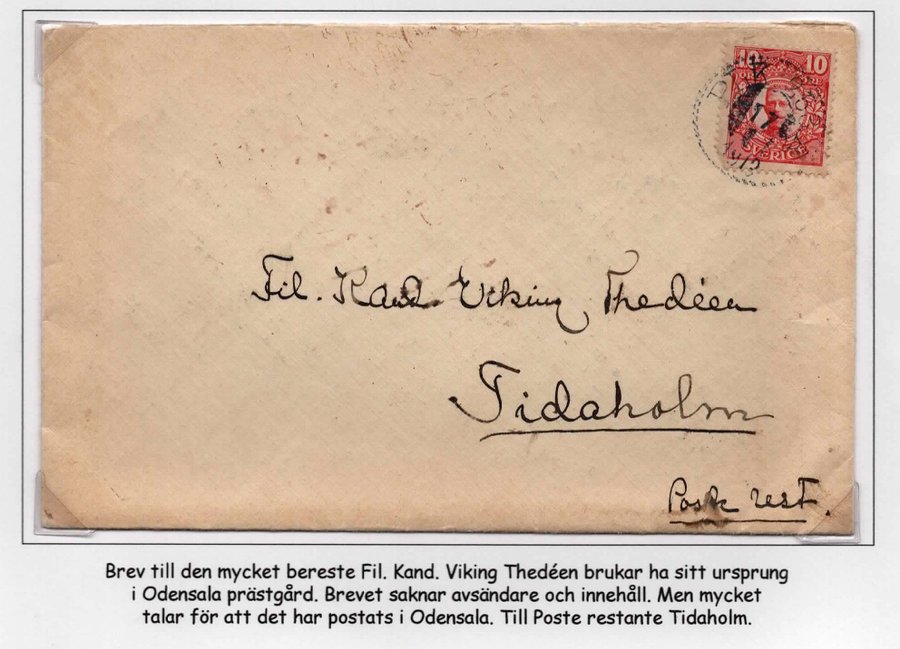 10 10
SVERIGE
Fil. Kand. Viking Thedéen
Tidaholm
Post rest.
Brev till den mycket bereste Fil. Kand. Viking Thedéen brukar ha sitt ursprung
i Odensala prästgård. Brevet saknar avsändare och innehåll. Men mycket
talar för att det har postats i Odensala. Till Poste restante Tidaholm.